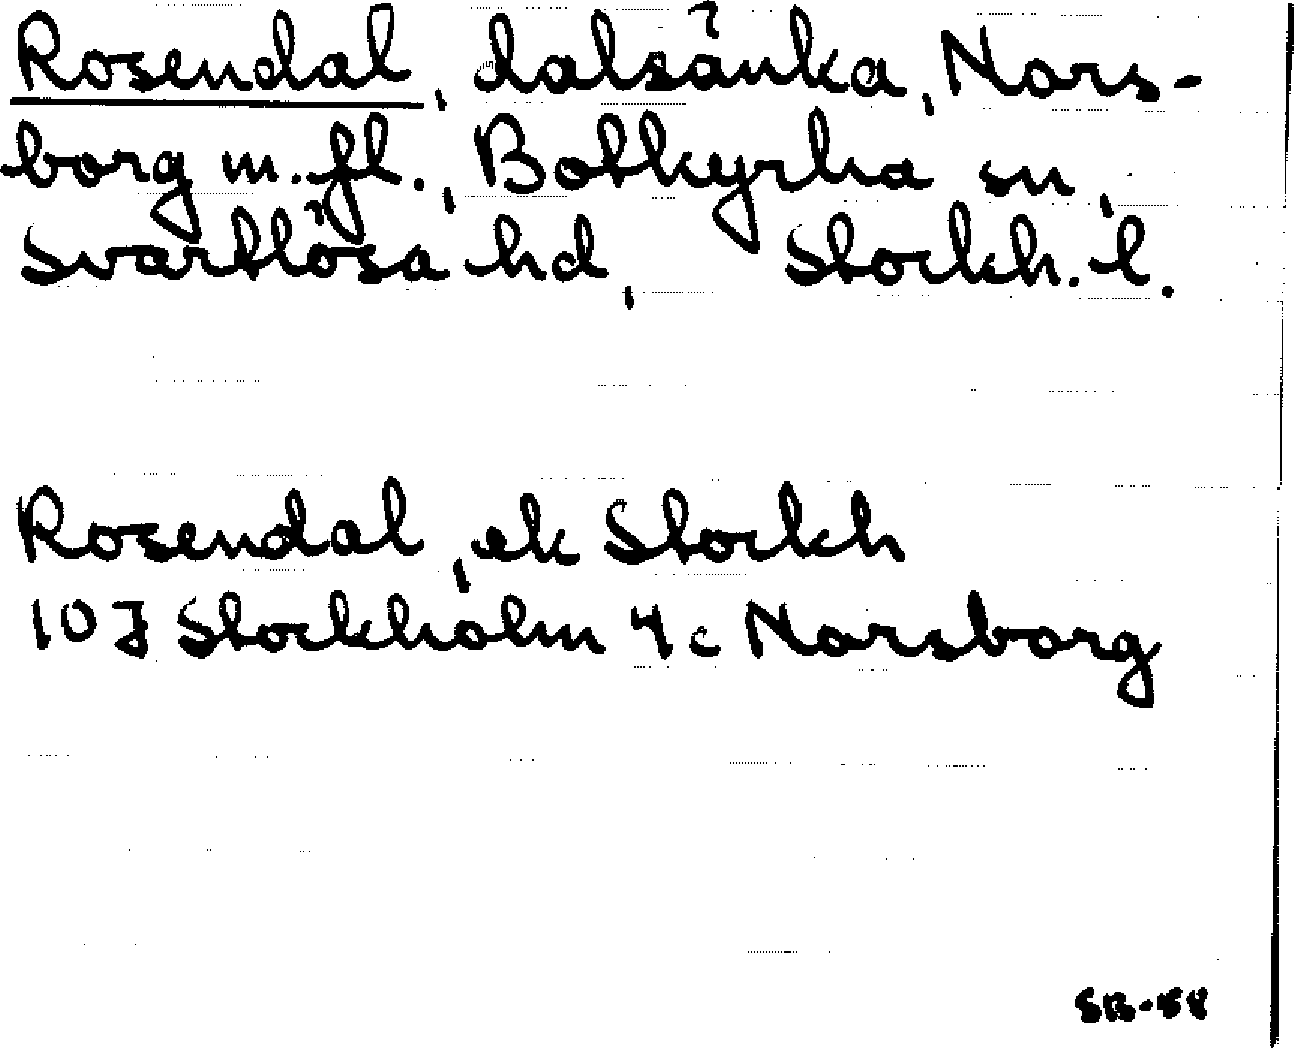 Rosendal, dalsänka, Nors-
borg m.fl., Botkyrka sn,
Svartlösa hd, Stockh. l.
Rosendal, ek Stockh
10J Stockholm 4c Norsborg